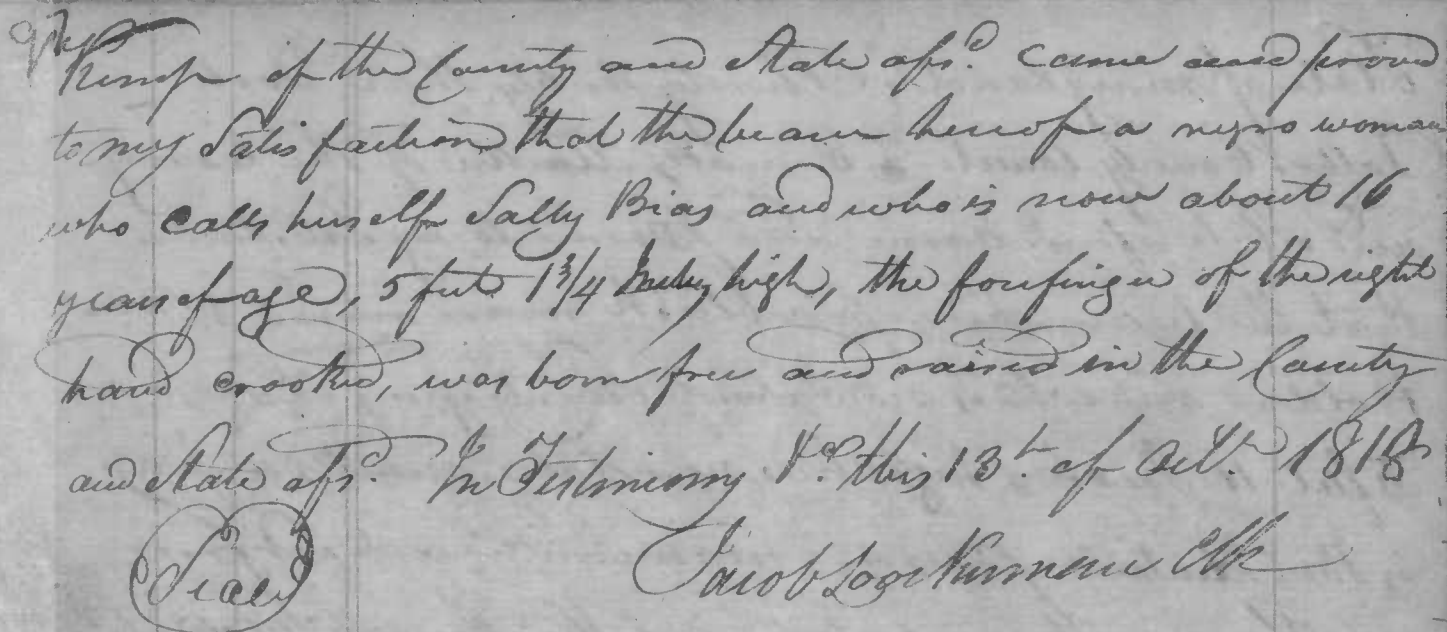 Kemp of the County and State afsd. came and proved
to my Satisfaction that the bearer hereof a negro woman
who calls herself Sally Bias and who is now about 16
years of age, 5 feet 1 3/4 Inches high, the forefinger of the right
hand crooked, was born free and raised in the County
and State afsd. In Testimony &c. this 13th. of Octr. 1818
Seal Jacob Loockerman Clk